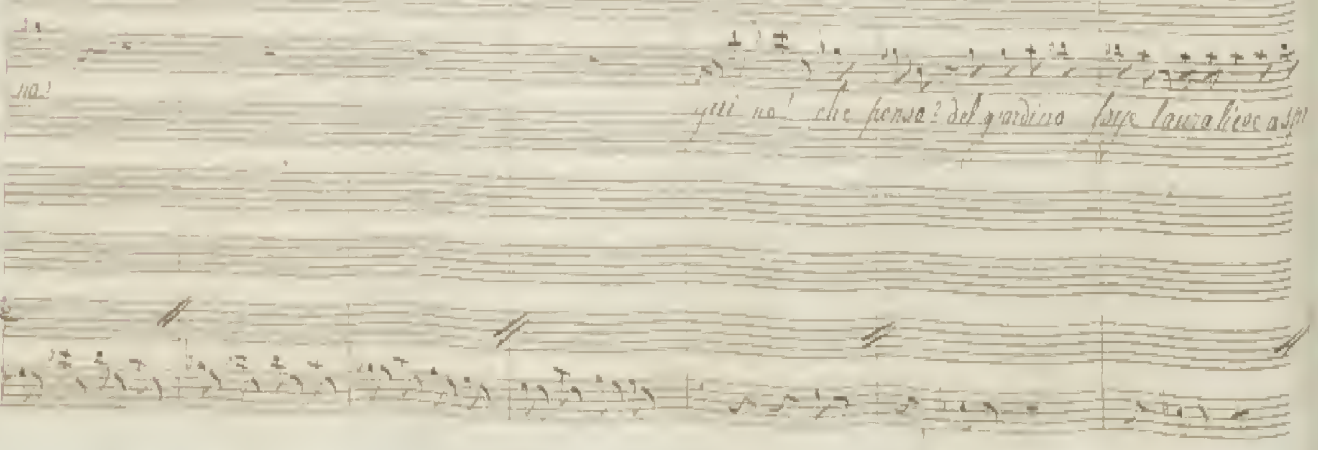 no!
qui no! che penso? del giardino forse l'aura lieve a spi